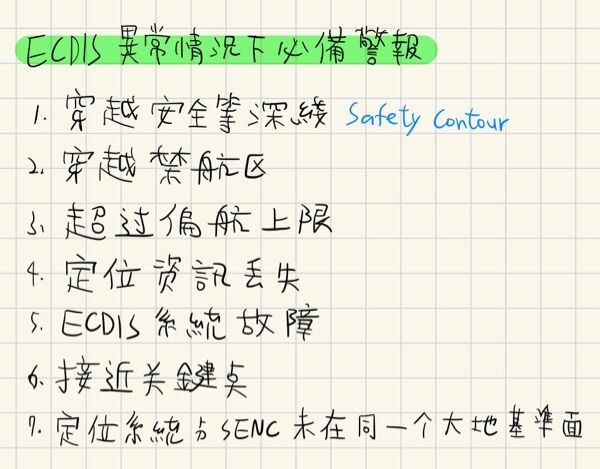 ECDIS 異常情況下必備警報
1. 穿越安全等深綫 Safety Contour
2. 穿越禁航区
3. 超过偏航上限
4. 定位資訊丢失
5. ECDIS 系統故障
6. 接近关鍵点
7. 定位系統与 SENC 未在同一个大地基準面